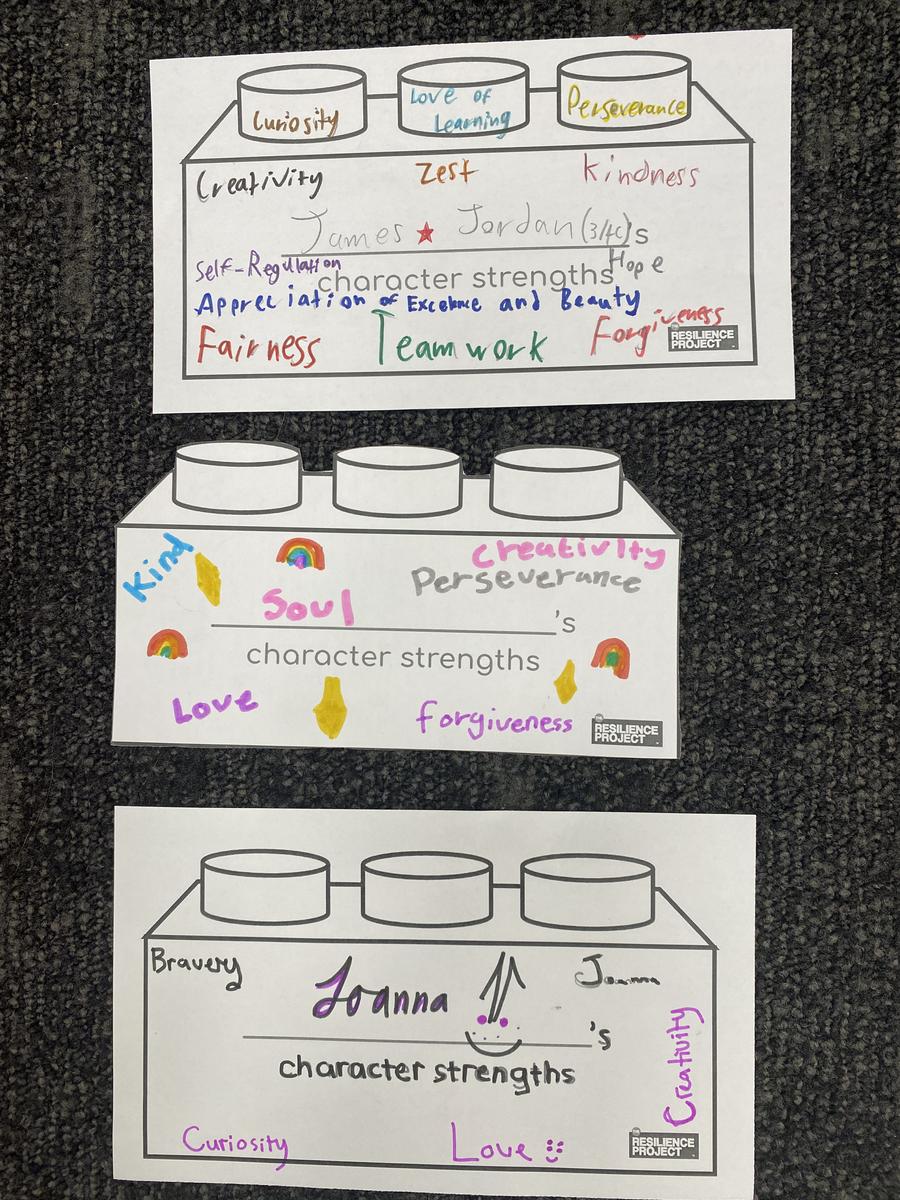 Curiosity
Love of
Learning
Perseverance
Creativity
Zest
Kindness
James Jordan (3/4C)'s
Self-Regulation
Hope
character strengths
Appreciation of Excelence and Beauty
Fairness
Teamwork
Forgiveness
THE
RESILIENCE
PROJECT
Kind
Creativity
Perseverance
Soul
's
character strengths
Love
forgiveness
THE
RESILIENCE
PROJECT
Bravery
Joanna
Joanna
's
character strengths
Creativity
Curiosity
Love
THE
RESILIENCE
PROJECT